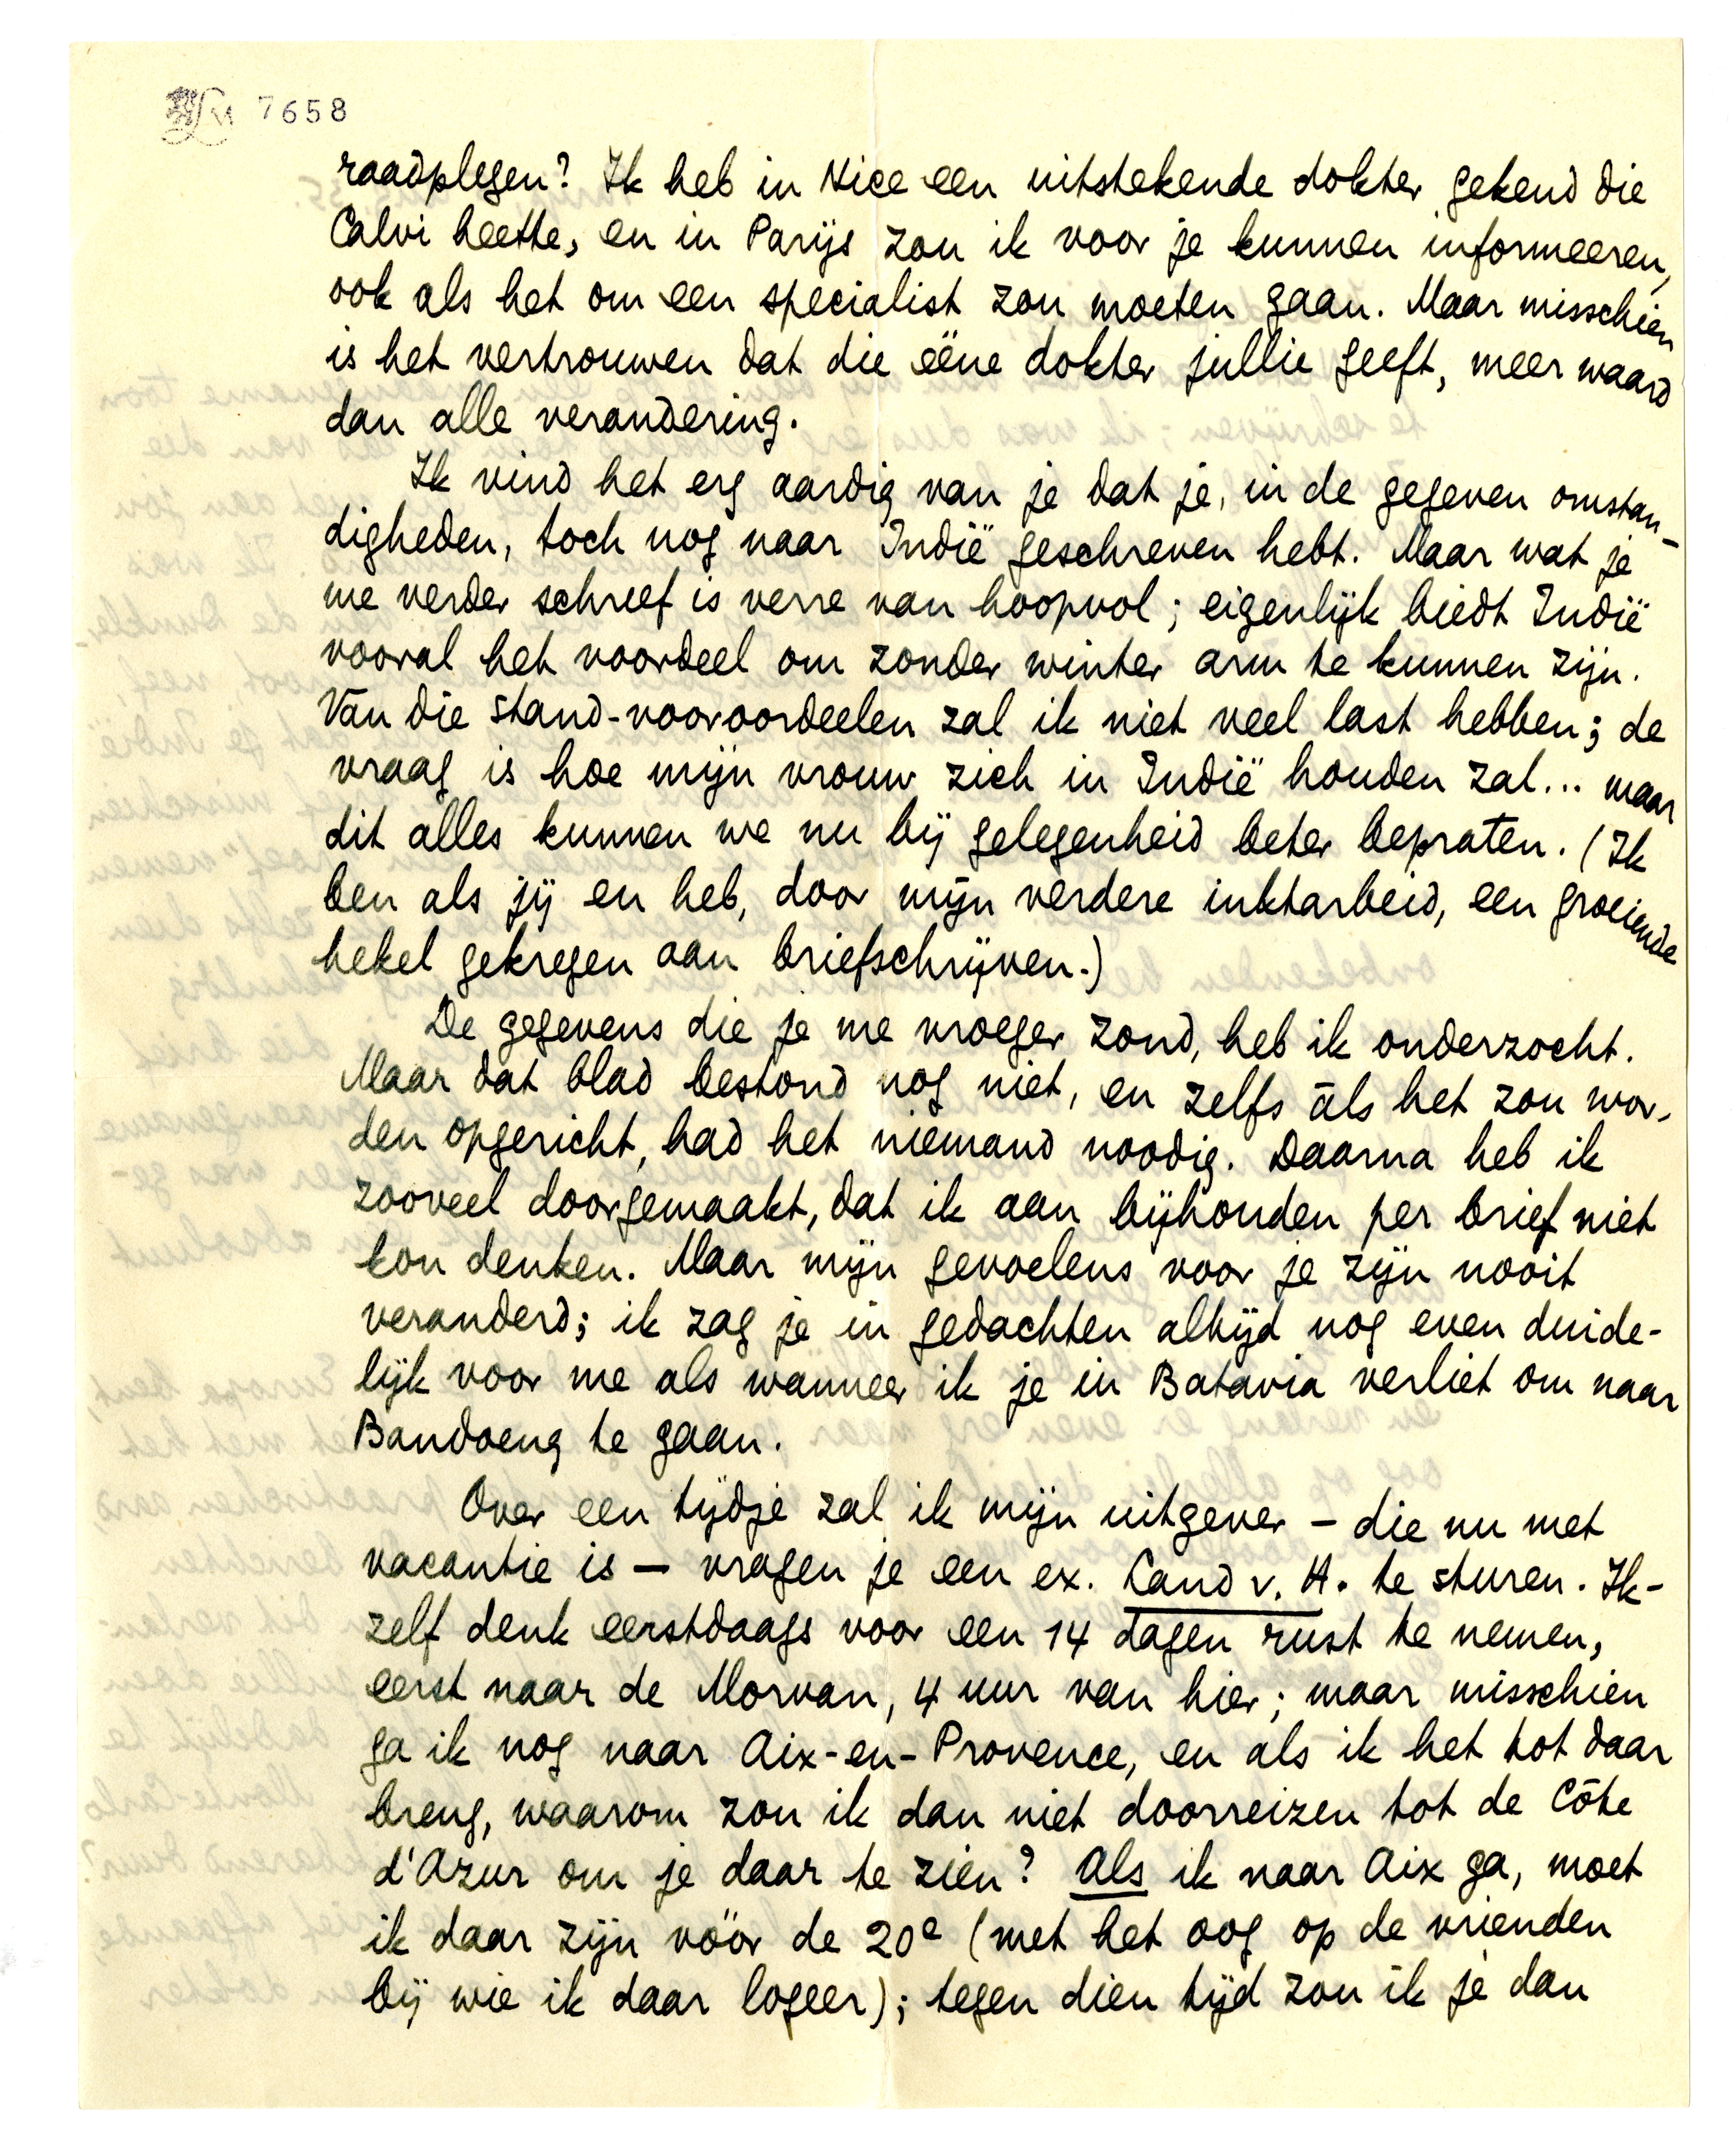 7658
raadplegen? Ik heb in Nice een uitstekende dokter gekend die
Calvi heette, en in Parijs zou ik voor je kunnen informeeren,
ook als het om een specialist zou moeten gaan. Maar misschien
is het vertrouwen dat die ééne dokter jullie geeft, meer waard
dan alle verandering.
Ik vind het erg aardig van je dat je, in de gegeven omstan-
digheden, toch nog naar Indië geschreven hebt. Maar wat je
me verder schreef is verre van hoopvol; eigenlijk biedt Indië
vooral het voordeel om zonder winter arm te kunnen zijn.
Van die stand-vooroordeelen zal ik niet veel last hebben; de
vraag is hoe mijn vrouw zich in Indië houden zal... maar
dit alles kunnen we nu bij gelegenheid beter bepraten. (Ik
ben als jij en heb, door mijn verdere inktarbeid, een groeiende
hekel gekregen aan briefschrijven.)
De gegevens die je me vroeger zond, heb ik onderzocht.
Maar dat blad bestond nog niet, en zelfs àls het zou wor-
den opgericht, had het niemand noodig. Daarna heb ik
zooveel doorgemaakt, dat ik aan bijhouden per brief niet
kon denken. Maar mijn gevoelens voor je zijn nooit
veranderd; ik zag je in gedachten altijd nog even duide-
lijk voor me als wanneer ik je in Batavia verliet om naar
Bandoeng te gaan.
Over een tijdje zal ik mijn uitgever – die nu met
vacantie is – vragen je een ex. Land v. H. te sturen. Ik-
zelf denk eerstdaags voor een 14 dagen rust te nemen,
eerst naar de Morvan, 4 uur van hier; maar misschien
ga ik nog naar Aix-en-Provence, en als ik het tot daar
breng, waarom zou ik dan niet doorreizen tot de Côte
d'Azur om je daar te zien? Als ik naar Aix ga, moet
ik daar zijn vóór de 20e (met het oog op de vrienden
bij wie ik daar logeer); tegen dien tijd zou ik je dan